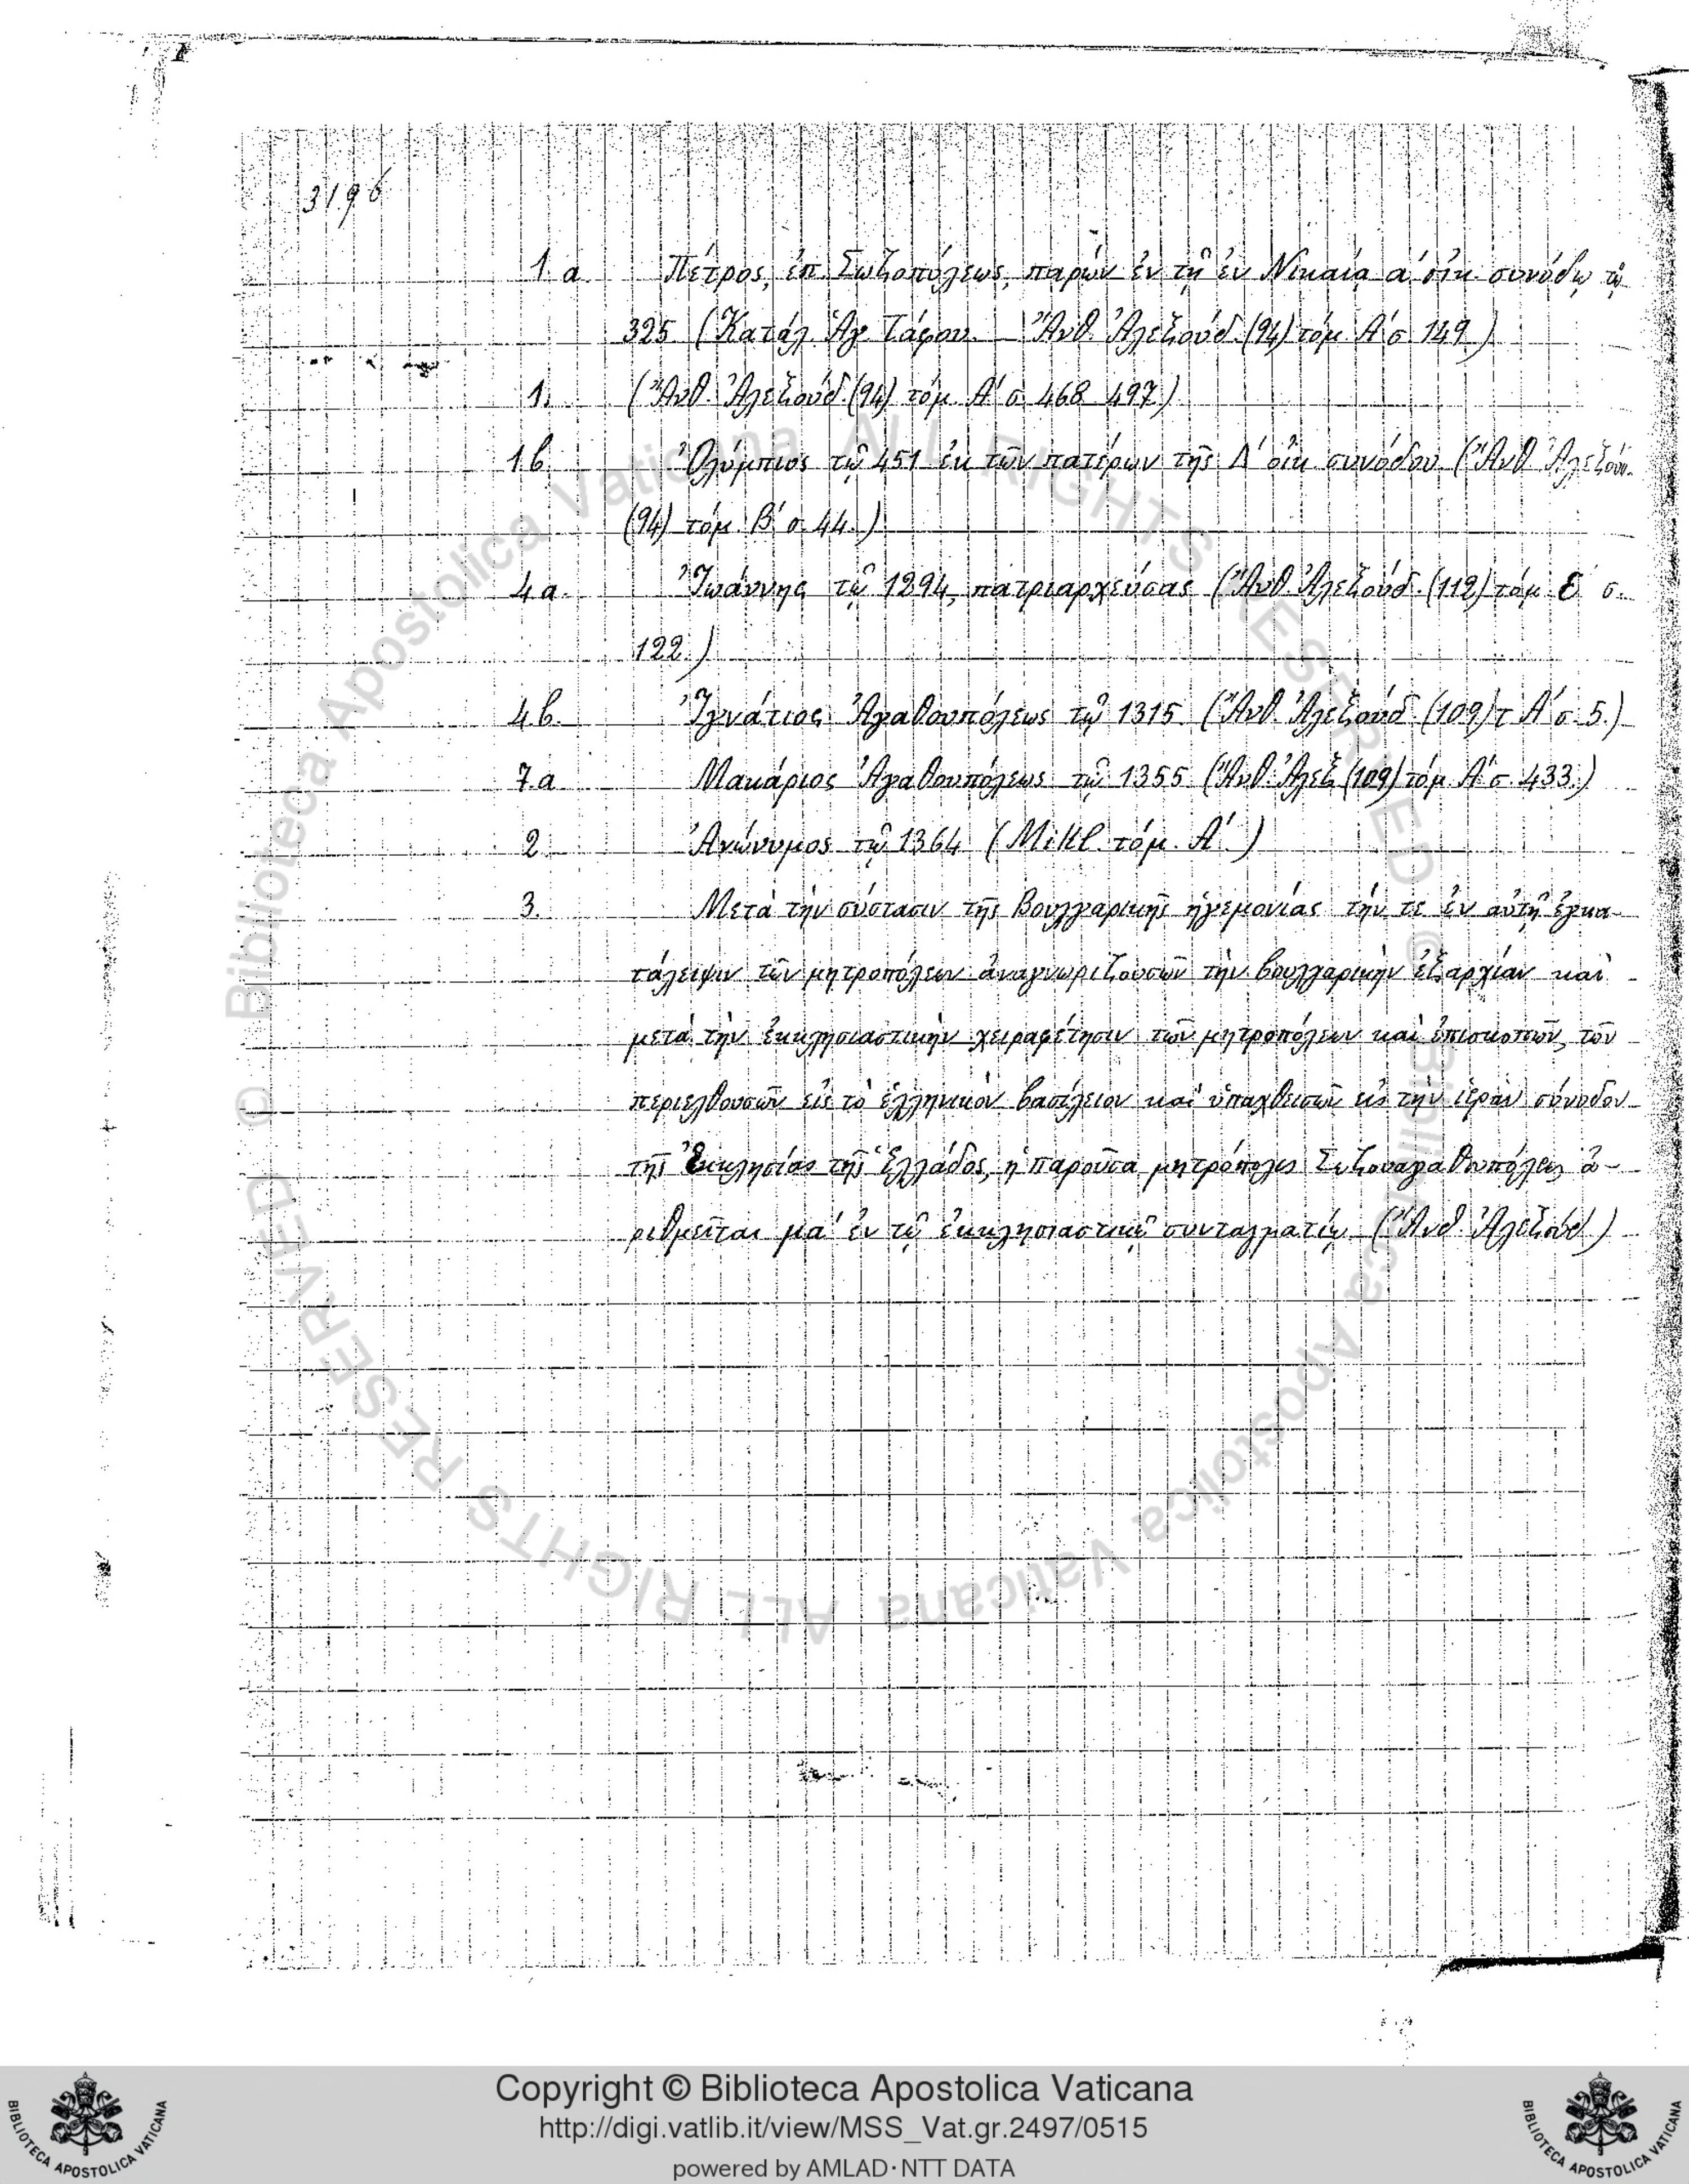 3196
1.a. Πέτρος, ἐπ. Σωζοπόλεως, παρὼν ἐν τῇ ἐν Νικαίᾳ α΄ οἰκ. συνόδῳ τῷ
325 (Κατάλ. Ἁγ. Τάφου. Ἄνθ. Ἀλεξούδ. (94) τόμ. Α΄ σ. 149.)
1. (Ἄνθ. Ἀλεξούδ. (94) τόμ. Α΄ σ. 468 497.)
1b. Ὀλύμπιος τῷ 451 ἐκ τῶν πατέρων τῆς Δ΄ οἰκ. συνόδου (Ἄνθ. Ἀλεξούδ.
(94) τόμ. Β΄ σ. 44.)
4a. Ἰωάννης τῷ 1294, πατριαρχεύσας (Ἄνθ. Ἀλεξούδ. (112) τόμ. Ε΄ σ.
122.)
4b. Ἰγνάτιος Ἀγαθουπόλεως τῷ 1315. (Ἄνθ. Ἀλεξούδ. (109) τ. Α΄ σ. 5.)
7.a Μακάριος Ἀγαθουπόλεως τῷ 1355 (Ἄνθ. Ἀλεξ. (109) τόμ. Α΄ σ. 433.)
2. Ἀνώνυμος τῷ 1364 (Mikl. τόμ. Α΄.)
3. Μετὰ τὴν σύστασιν τῆς Βουλγαρικῆς ἡγεμονίας τήν τε ἐν αὐτῇ ἐγκα-
τάλειψιν τῶν μητροπόλεων ἀναγνωριζουσῶν τὴν βουλγαρικὴν ἐξαρχίαν καὶ
μετὰ τὴν ἐκκλησιαστικὴν χειραφέτησιν τῶν μητροπόλεων καὶ ἐπισκοπῶν, τῶν
περιελθουσῶν εἰς τὸ ἑλληνικὸν βασίλειον καὶ ὑπαχθεισῶν εἰς τὴν ἱερὰν σύνοδον
τῆς Ἐκκλησίας τῆς Ἑλλάδος, ἡ παροῦσα μητρόπολις Σωζουαγαθουπόλεως ἀ-
ριθμεῖται μα΄ ἐν τῷ ἐκκλησιαστικῷ συνταγματίῳ (Ἄνθ. Ἀλεξούδ.)
© Biblioteca Apostolica Vaticana ALL RIGHTS RESERVED © Biblioteca Apostolica Vaticana ALL RIGHTS RESERVED
Copyright © Biblioteca Apostolica Vaticana
http://digi.vatlib.it/view/MSS_Vat.gr.2497/0515
powered by AMLAD·NTT DATA
BIBLIOTECA APOSTOLICA VATICANA
BIBLIOTECA APOSTOLICA VATICANA